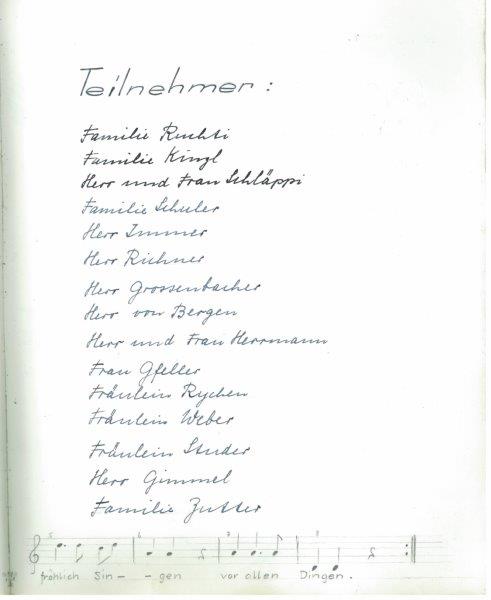 Teilnehmer :
Familie Ruchti
Familie Kingl
Herr und Frau Schläppi
Familie Schuler
Herr Immer
Herr Richner
Herr Grossenbacher
Herr von Bergen
Herr und Frau Herrmann
Frau Gfeller
Fräulein Rychen
Fräulein Weber
Fräulein Studer
Herr Gimmel
Familie Zutter
fröhlich Sin- - -gen vor allen Dingen.